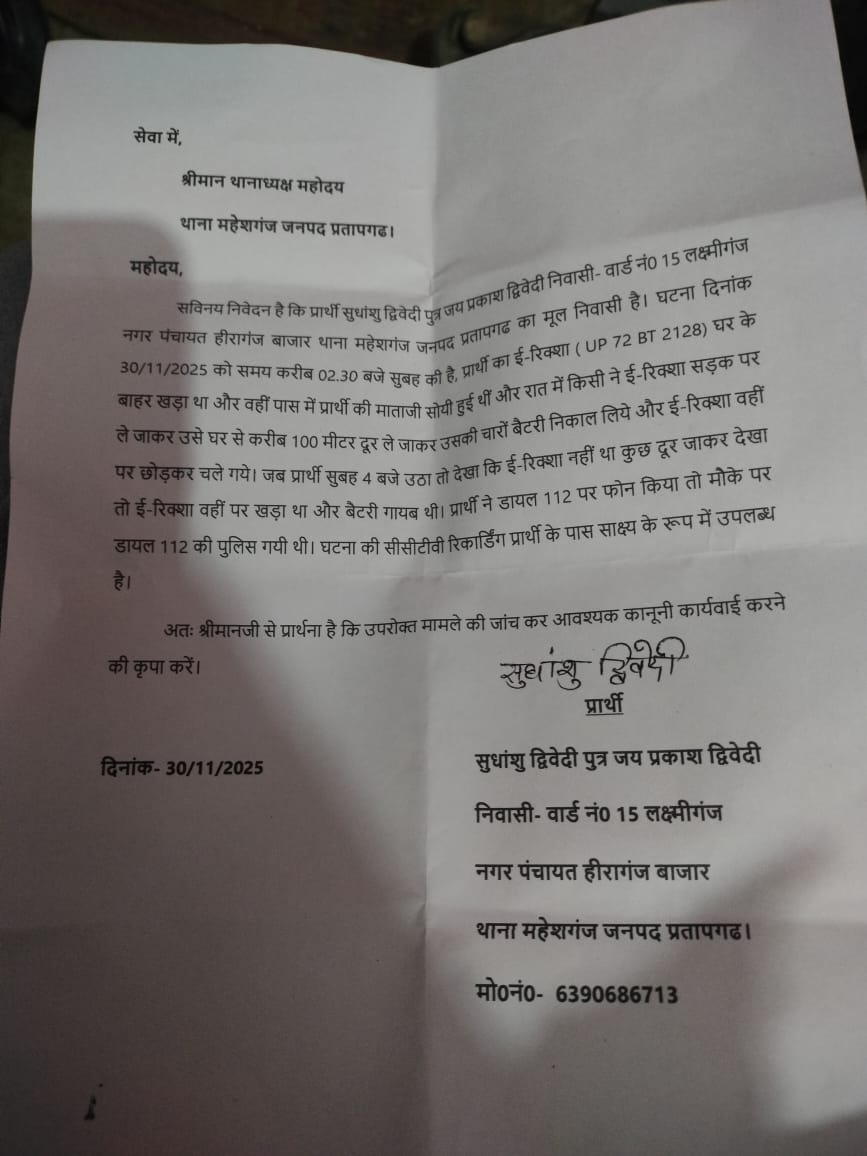 सेवा में,
श्रीमान थानाध्यक्ष महोदय
थाना महेशगंज जनपद प्रतापगढ।
महोदय,
सविनय निवेदन है कि प्रार्थी सुधांशु द्विवेदी पुत्र जय प्रकाश द्विवेदी निवासी- वार्ड नं0 15 लक्ष्मीगंज
नगर पंचायत हीरागंज बाजार थाना महेशगंज जनपद प्रतापगढ का मूल निवासी है। घटना दिनांक
30/11/2025 को समय करीब 02.30 बजे सुबह की है, प्रार्थी का ई-रिक्शा ( UP 72 BT 2128) घर के
बाहर खड़ा था और वहीं पास में प्रार्थी की माताजी सोयी हुई थीं और रात में किसी ने ई-रिक्शा सड़क पर
ले जाकर उसे घर से करीब 100 मीटर दूर ले जाकर उसकी चारों बैटरी निकाल लिये और ई-रिक्शा वहीं
पर छोड़कर चले गये। जब प्रार्थी सुबह 4 बजे उठा तो देखा कि ई-रिक्शा नहीं था कुछ दूर जाकर देखा
तो ई-रिक्शा वहीं पर खड़ा था और बैटरी गायब थी। प्रार्थी ने डायल 112 पर फोन किया तो मौके पर
डायल 112 की पुलिस गयी थी। घटना की सीसीटीवी रिकार्डिंग प्रार्थी के पास साक्ष्य के रूप में उपलब्ध
है।
अतः श्रीमानजी से प्रार्थना है कि उपरोक्त मामले की जांच कर आवश्यक कानूनी कार्यवाई करने
की कृपा करें।
सुधांशु द्विवेदी
प्रार्थी
दिनांक- 30/11/2025
सुधांशु द्विवेदी पुत्र जय प्रकाश द्विवेदी
निवासी- वार्ड नं0 15 लक्ष्मीगंज
नगर पंचायत हीरागंज बाजार
थाना महेशगंज जनपद प्रतापगढ।
मो0नं0- 6390686713